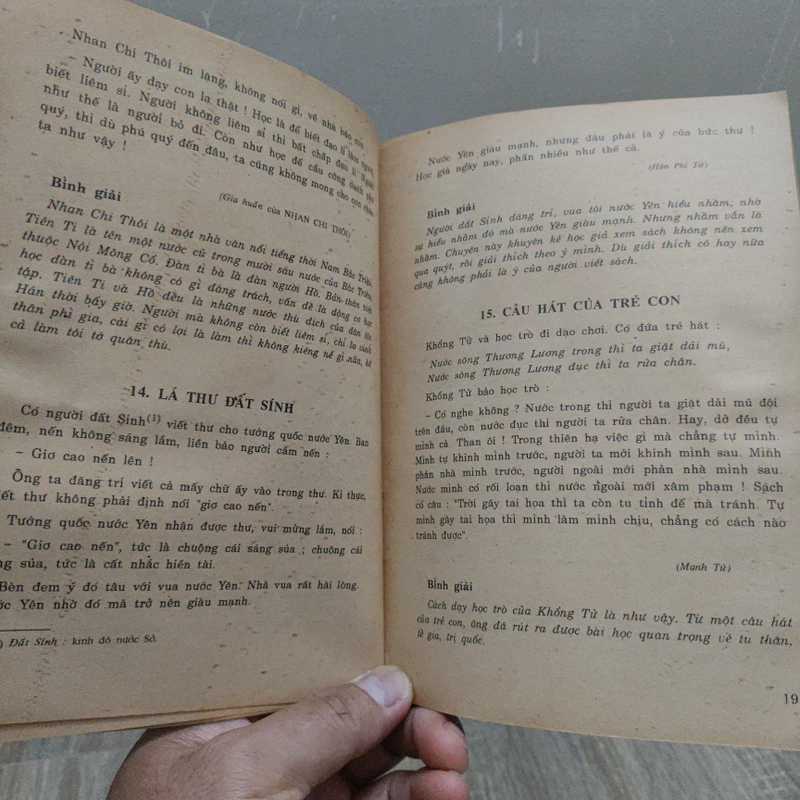 Nhan Chi Thôi im lặng, không nói gì, về nhà bảo con :
– Người ấy dạy con lạ thật ! Học là để biết đạo lí làm người,
biết liêm sỉ. Người không liêm sỉ thì bất chấp đạo lí. Người
như thế là người bỏ đi. Còn như học để cầu công danh phú
quý, thì dù phú quý đến đâu, ta cũng không mong cho con
ta như vậy !
(Gia huấn của NHAN CHI THÔI)
Bình giải
Nhan Chi Thôi là một nhà văn nổi tiếng thời Nam Bắc Triều.
Tiên Ti là tên một nước cũ trong mười sáu nước của Bắc Triều,
thuộc Nội Mông Cổ. Đàn tì bà là đàn người Hồ. Bản thân việc
học đàn tì bà không có gì đáng trách, vấn đề là động cơ học
tập. Tiên Ti và Hồ đều là những nước thù địch của dân tộc
Hán thời bấy giờ. Người mà không còn biết liêm sỉ, chỉ lo vinh
thân phì gia, cái gì có lợi là làm thì không kiêng nể gì nữa, kể
cả làm tôi tớ quân thù.
14. LÁ THƯ ĐẤT SÍNH
Có người đất Sính(1) viết thư cho tướng quốc nước Yên. Ban
đêm, nến không sáng lắm, liền bảo người cầm nến :
– Giơ cao nến lên !
Ông ta đãng trí viết cả mấy chữ ấy vào trong thư. Kì thực,
viết thư không phải định nói "giơ cao nến".
Tướng quốc nước Yên nhận được thư, vui mừng lắm, nói :
– "Giơ cao nến", tức là chuộng cái sáng sủa ; chuộng cái
sáng sủa, tức là cất nhắc hiền tài.
Bèn đem ý đó tâu với vua nước Yên. Nhà vua rất hài lòng.
Nước Yên nhờ đó mà trở nên giàu mạnh.
) Đất Sính : kinh đô nước Sở.
Nước Yên giàu mạnh, nhưng đâu phải là ý của bức thư !
Học giả ngày nay, phần nhiều như thế cả.
(Hàn Phi Tử)
Bình giải
Người đất Sính đãng trí, vua tôi nước Yên hiểu nhầm, nhờ
sự hiểu nhầm đó mà nước Yên giàu mạnh. Nhưng nhầm vẫn là
nhầm. Chuyện này khuyên kẻ học giả xem sách không nên xem
qua quýt, rồi giải thích theo ý mình. Dù giải thích có hay nữa
cũng không phải là ý của người viết sách.
15. CÂU HÁT CỦA TRẺ CON
Khổng Tử và học trò đi dạo chơi. Có đứa trẻ hát :
Nước sông Thương Lương trong thì ta giặt dải mũ,
Nước sông Thương Lương đục thì ta rửa chân.
Khổng Tử bảo học trò :
– Có nghe không ? Nước trong thì người ta giặt dải mũ đội
trên đầu, còn nước đục thì người ta rửa chân. Hay, dở đều tự
mình cả. Than ôi ! Trong thiên hạ việc gì mà chẳng tự mình.
Mình tự khinh mình trước, người ta mới khinh mình sau. Mình
phản nhà mình trước, người ngoài mới phản nhà mình sau.
Nước mình có rối loạn thì nước ngoài mới xâm phạm ! Sách
có câu : "Trời gây tai họa thì ta còn tu tỉnh để mà tránh. Tự
mình gây tai họa thì mình làm mình chịu, chẳng có cách nào
tránh được".
(Mạnh Tử)
Bình giải
Cách dạy học trò của Khổng Tử là như vậy. Từ một câu hát
của trẻ con, ông đã rút ra được bài học quan trọng về tu thân,
tề gia, trị quốc.
19